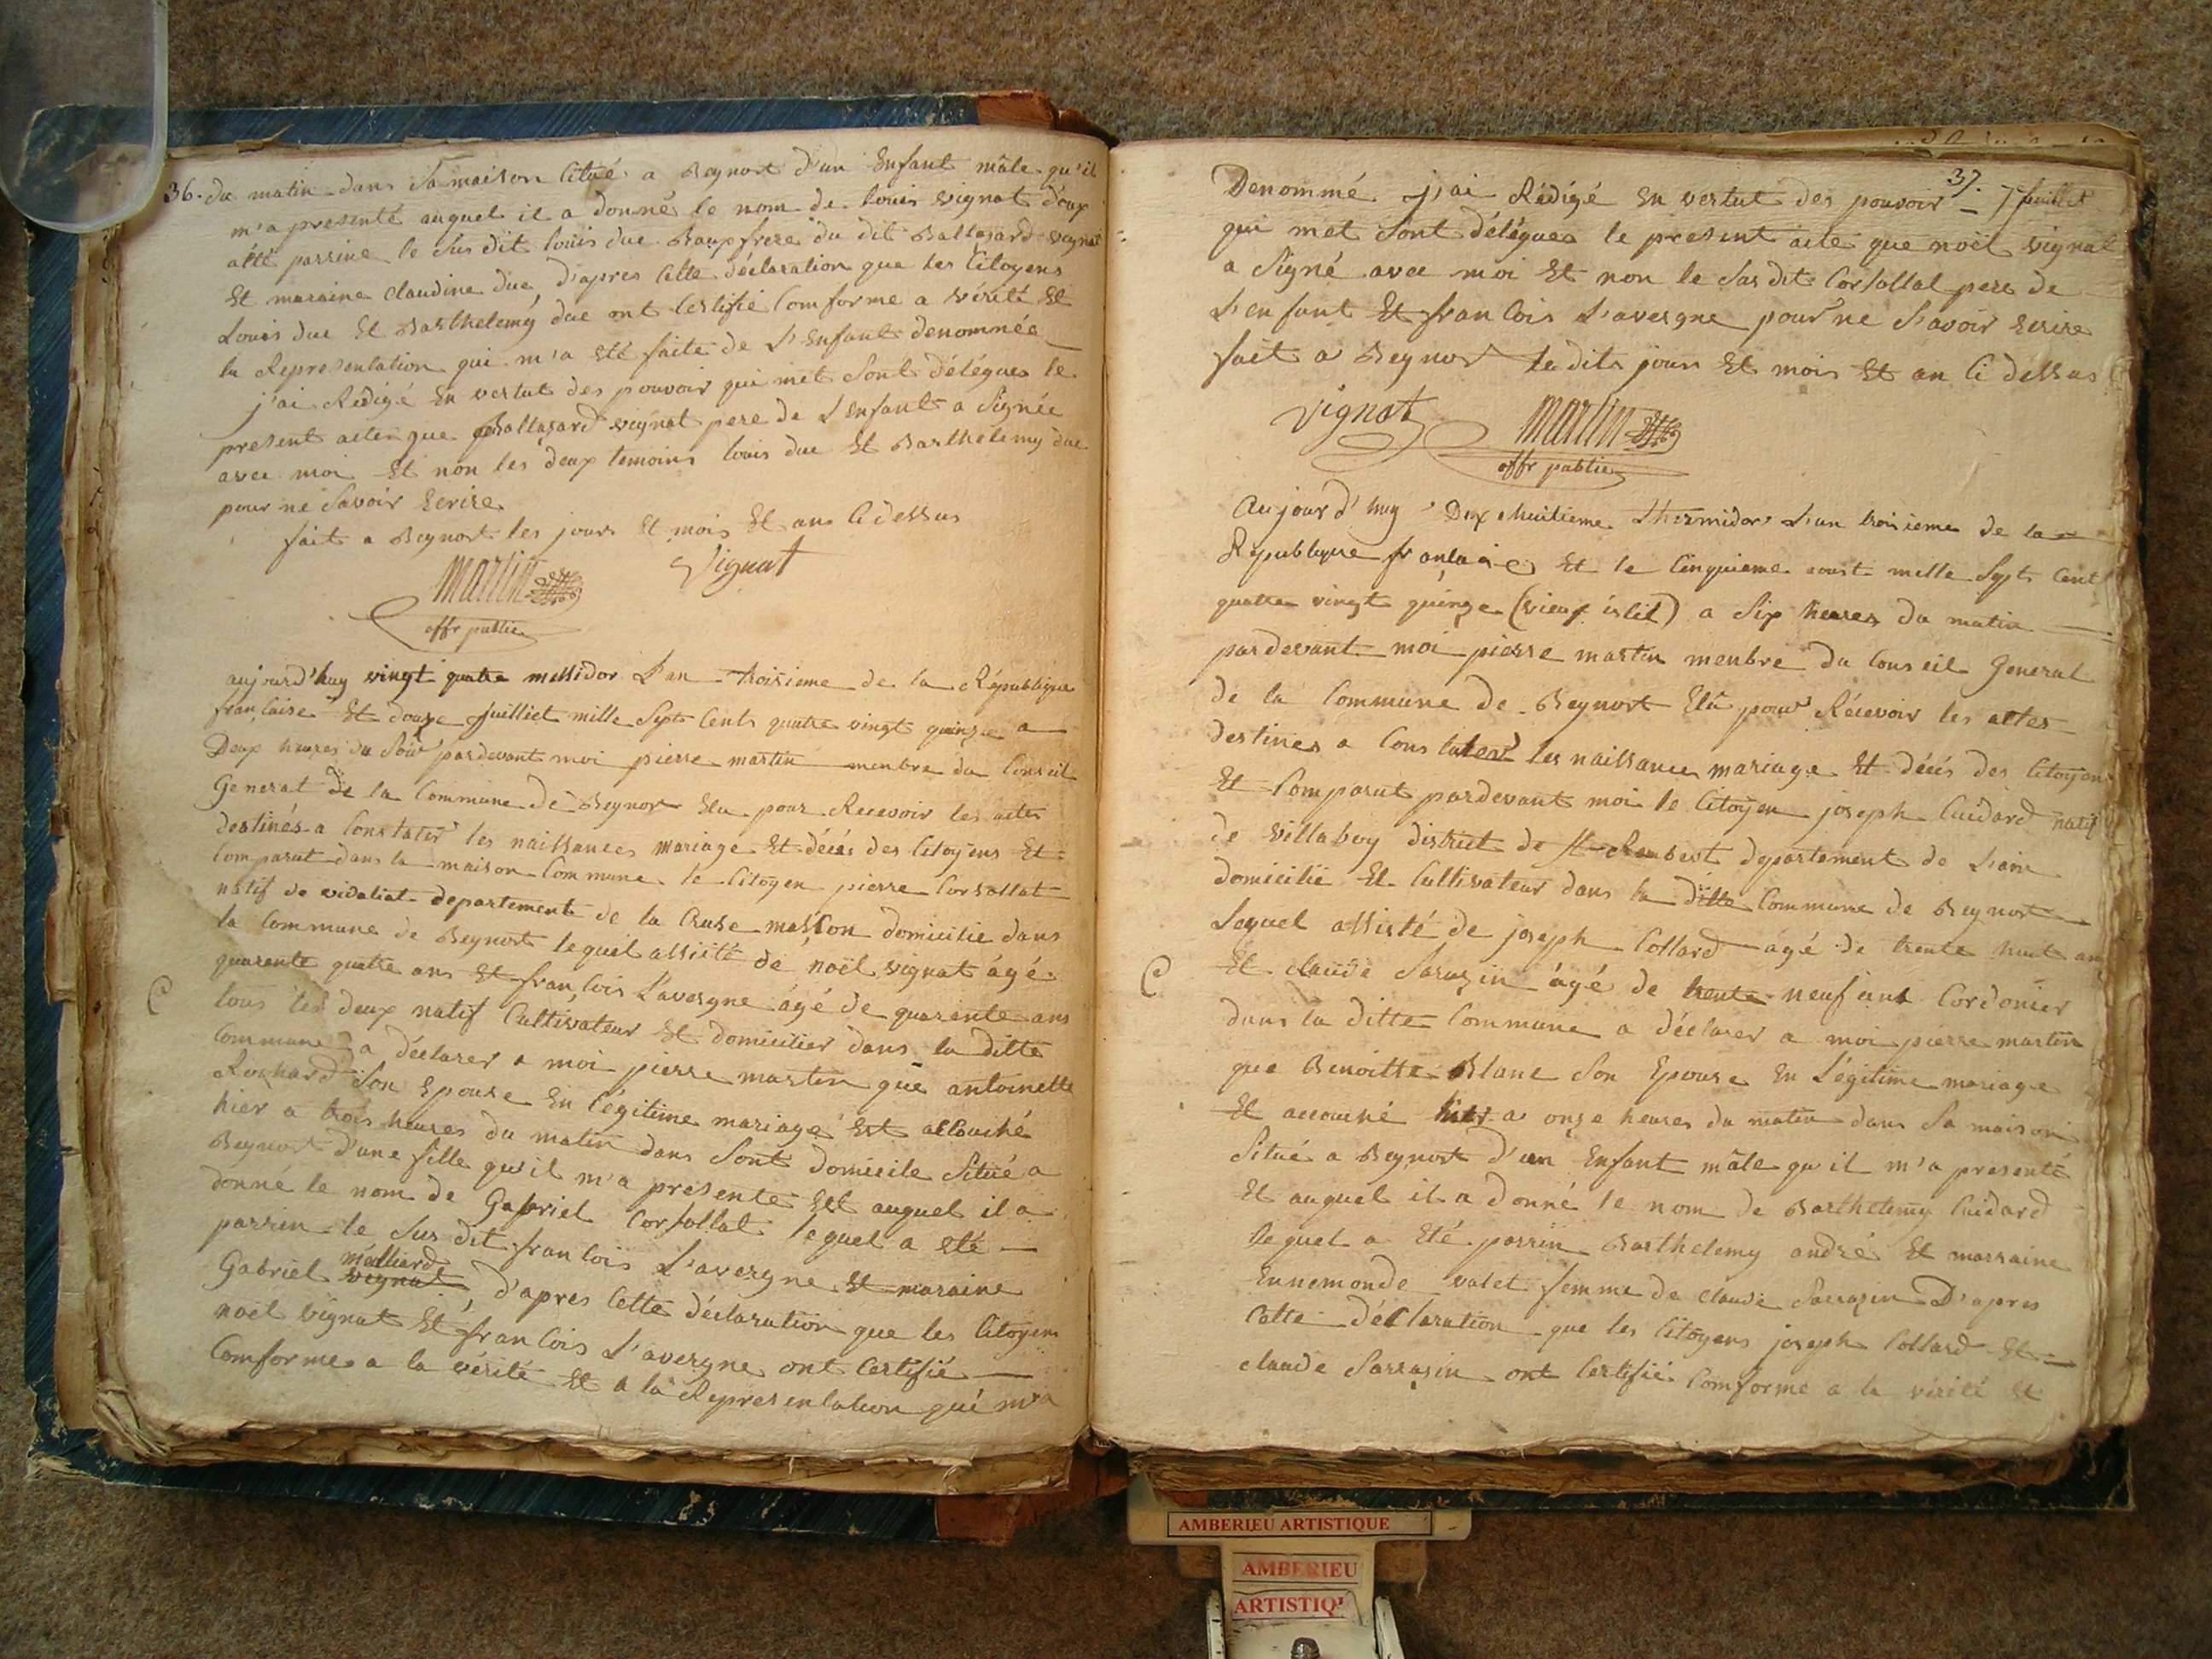 36. du matin dans sa maison Citué a Beynost d'un Enfant mâle qu'il
m'a presenté auquel il a donné le nom de louis vignat d'oux
alté parrine le susdit louis duc Beaupfrere du dit Baltazard vignat
Et maraine Claudine duc d'apres Cette déclaration que les Citoyens
Louis duc Et Barthelemy duc ont Certifié Comforme a vérité Et
la Representation qui m'a eté faite de L'Enfant denommée
j'ai Redigé En vertut des pouvoir qui met Sont délégues le
present acte que Baltazard vignat pere de L'enfant a Signée
avec moi Et non les deux temoins louis duc Et Barthelemy duc
pour ne Savoir Ecrire
fait a Beynost les jours Et mois Et an Ci dessus
Martin Vignat
offr public
aujourd'huy vingt quatre messidor L'an troisieme de la République
françaises Et douze Juilliet mille Sept Cents quatre vingt quinze a
Deux heures du Soir pardevant moi pierre martin menbre du Conseil
General de la Commune de Beynost Elu pour Recevoir les actes
destinés a Constater les naissances mariage Et décés des Citoyens Et
Comparut dans la maison Commune le Citoyen pierre Corsollat
natif de vidaliat departement de la Cruse masson domicilie dans
la Commune de Beynost lequel assisté de noël vignat âgé
quarente quatre ans Et françois L'avergne âgé de quarente ans
C tous les deux natif Cultivateur Et domicilier dans la ditte
Commune a déclarer a moi pierre martin que antoinette
Rochard Son Epouse En légitime mariage Est accouché
hier a trois heures du matin dans Sont domicile Situé a
Beynost d'une fille qu'il m'a presente Est auquel il a
donné le nom de Gabriel Corsollat lequel a eté
parrin le Sus dit francois L'avergne Et maraine
malliard
Gabriel vignat, d'apres Cette déclaration que les Citoyens
noël vignat Et francois L'avergne ont Certifié
Comforme a la vérité Et a la Representation qui m'a
37. 7 feuillet
Denommé j'ai Rédigé En vertut des pouvoir
qui met Sont délégues le present acte que noël vignat
a Signé avec moi Et non le Sus dit Corsollat pere de
L'enfant Et francois L'avergne pour ne Savoir Ecrire
fait a Beynost ledits jours Et mois Et an Ci dessus
Vignat Martin
offr public
Aujourd'huy Dix huitieme thermidor L'an troisieme de la
République francaise Et le Cinquieme aoust mille Sept Cent
quatre vingt quinze (vieux istil) a Six heures du matin
pardevant moi pierre martin menbre du Conseil General
de la Commune de Beynost Elû pour Récevoir les actes
destines a Constater les naissance mariage Et décés des Citoyens
Et Comparut pardevant moi le Citoyen joseph Cuidard natif
de villaboy district de St Rambert departement de L'ain
domicilié Et Cultivateur dans la ditte Commune de Beynost
Lequel assisté de joseph Collard agé de trente huit ans
C Et claude Sarazin âgé de trente neuf ans Cordonier
dans la ditte Commune a déclarer a moi pierre martin
que Benoitte Blanc Son Epouse En Légitime mariage
Et accouché hier a onze heures du matin dans Sa maison
Situé a Beynost d'un Enfant mâle qu'il m'a presenté
Et auquel il a donné le nom de Barthelemy Cuidard
lequel a Eté parrin Barthelemy andré Et marraine
Ennemonde valet femme de claude Sarrazin D'apres
Cette déClaration que les Citoyens joseph Collard Et
claude Sarrazin ont Certifié Comforme a la vérité Et
AMBERIEU ARTISTIQUE
AMBERIEU
ARTISTIQ